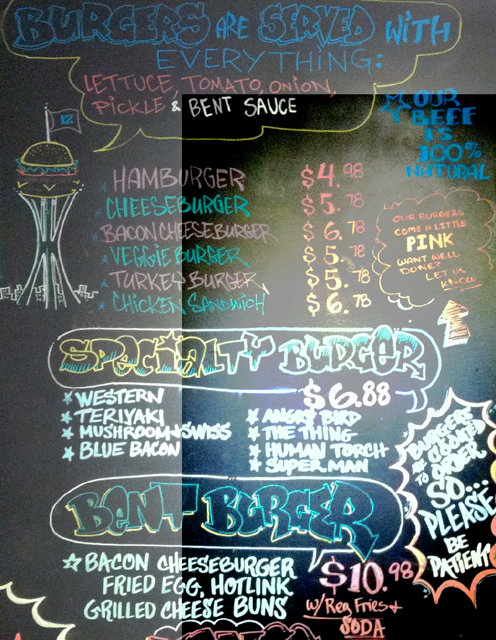 BURGERS ARE SERVED WITH
EVERYTHING:
LETTUCE, TOMATO, ONION,
PICKLE & BENT SAUCE
12
OUR
BEEF
IS
100%
NATURAL
HAMBURGER $4.98
CHEESEBURGER $5.78
BACON CHEESEBURGER $6.78
VEGGIE BURGER $5.78
TURKEY BURGER $5.78
CHICKEN SANDWICH $6.78
OUR BURGERS
COME A LITTLE
PINK
WANT WELL
DONE?
LET US
KNOW
SPECIALTY BURGER
$6.88
WESTERN
TERIYAKI
MUSHROOM+SWISS
BLUE BACON
ANGRY BIRD
THE THING
HUMAN TORCH
SUPERMAN
BURGERS
COOKED
TO
ORDER
SO...
PLEASE
BE
PATIENT
BENT BURGER
BACON CHEESEBURGER
FRIED EGG, HOTLINK
GRILLED CHEESE BUNS
$10.98
W/ Reg Fries +
SODA